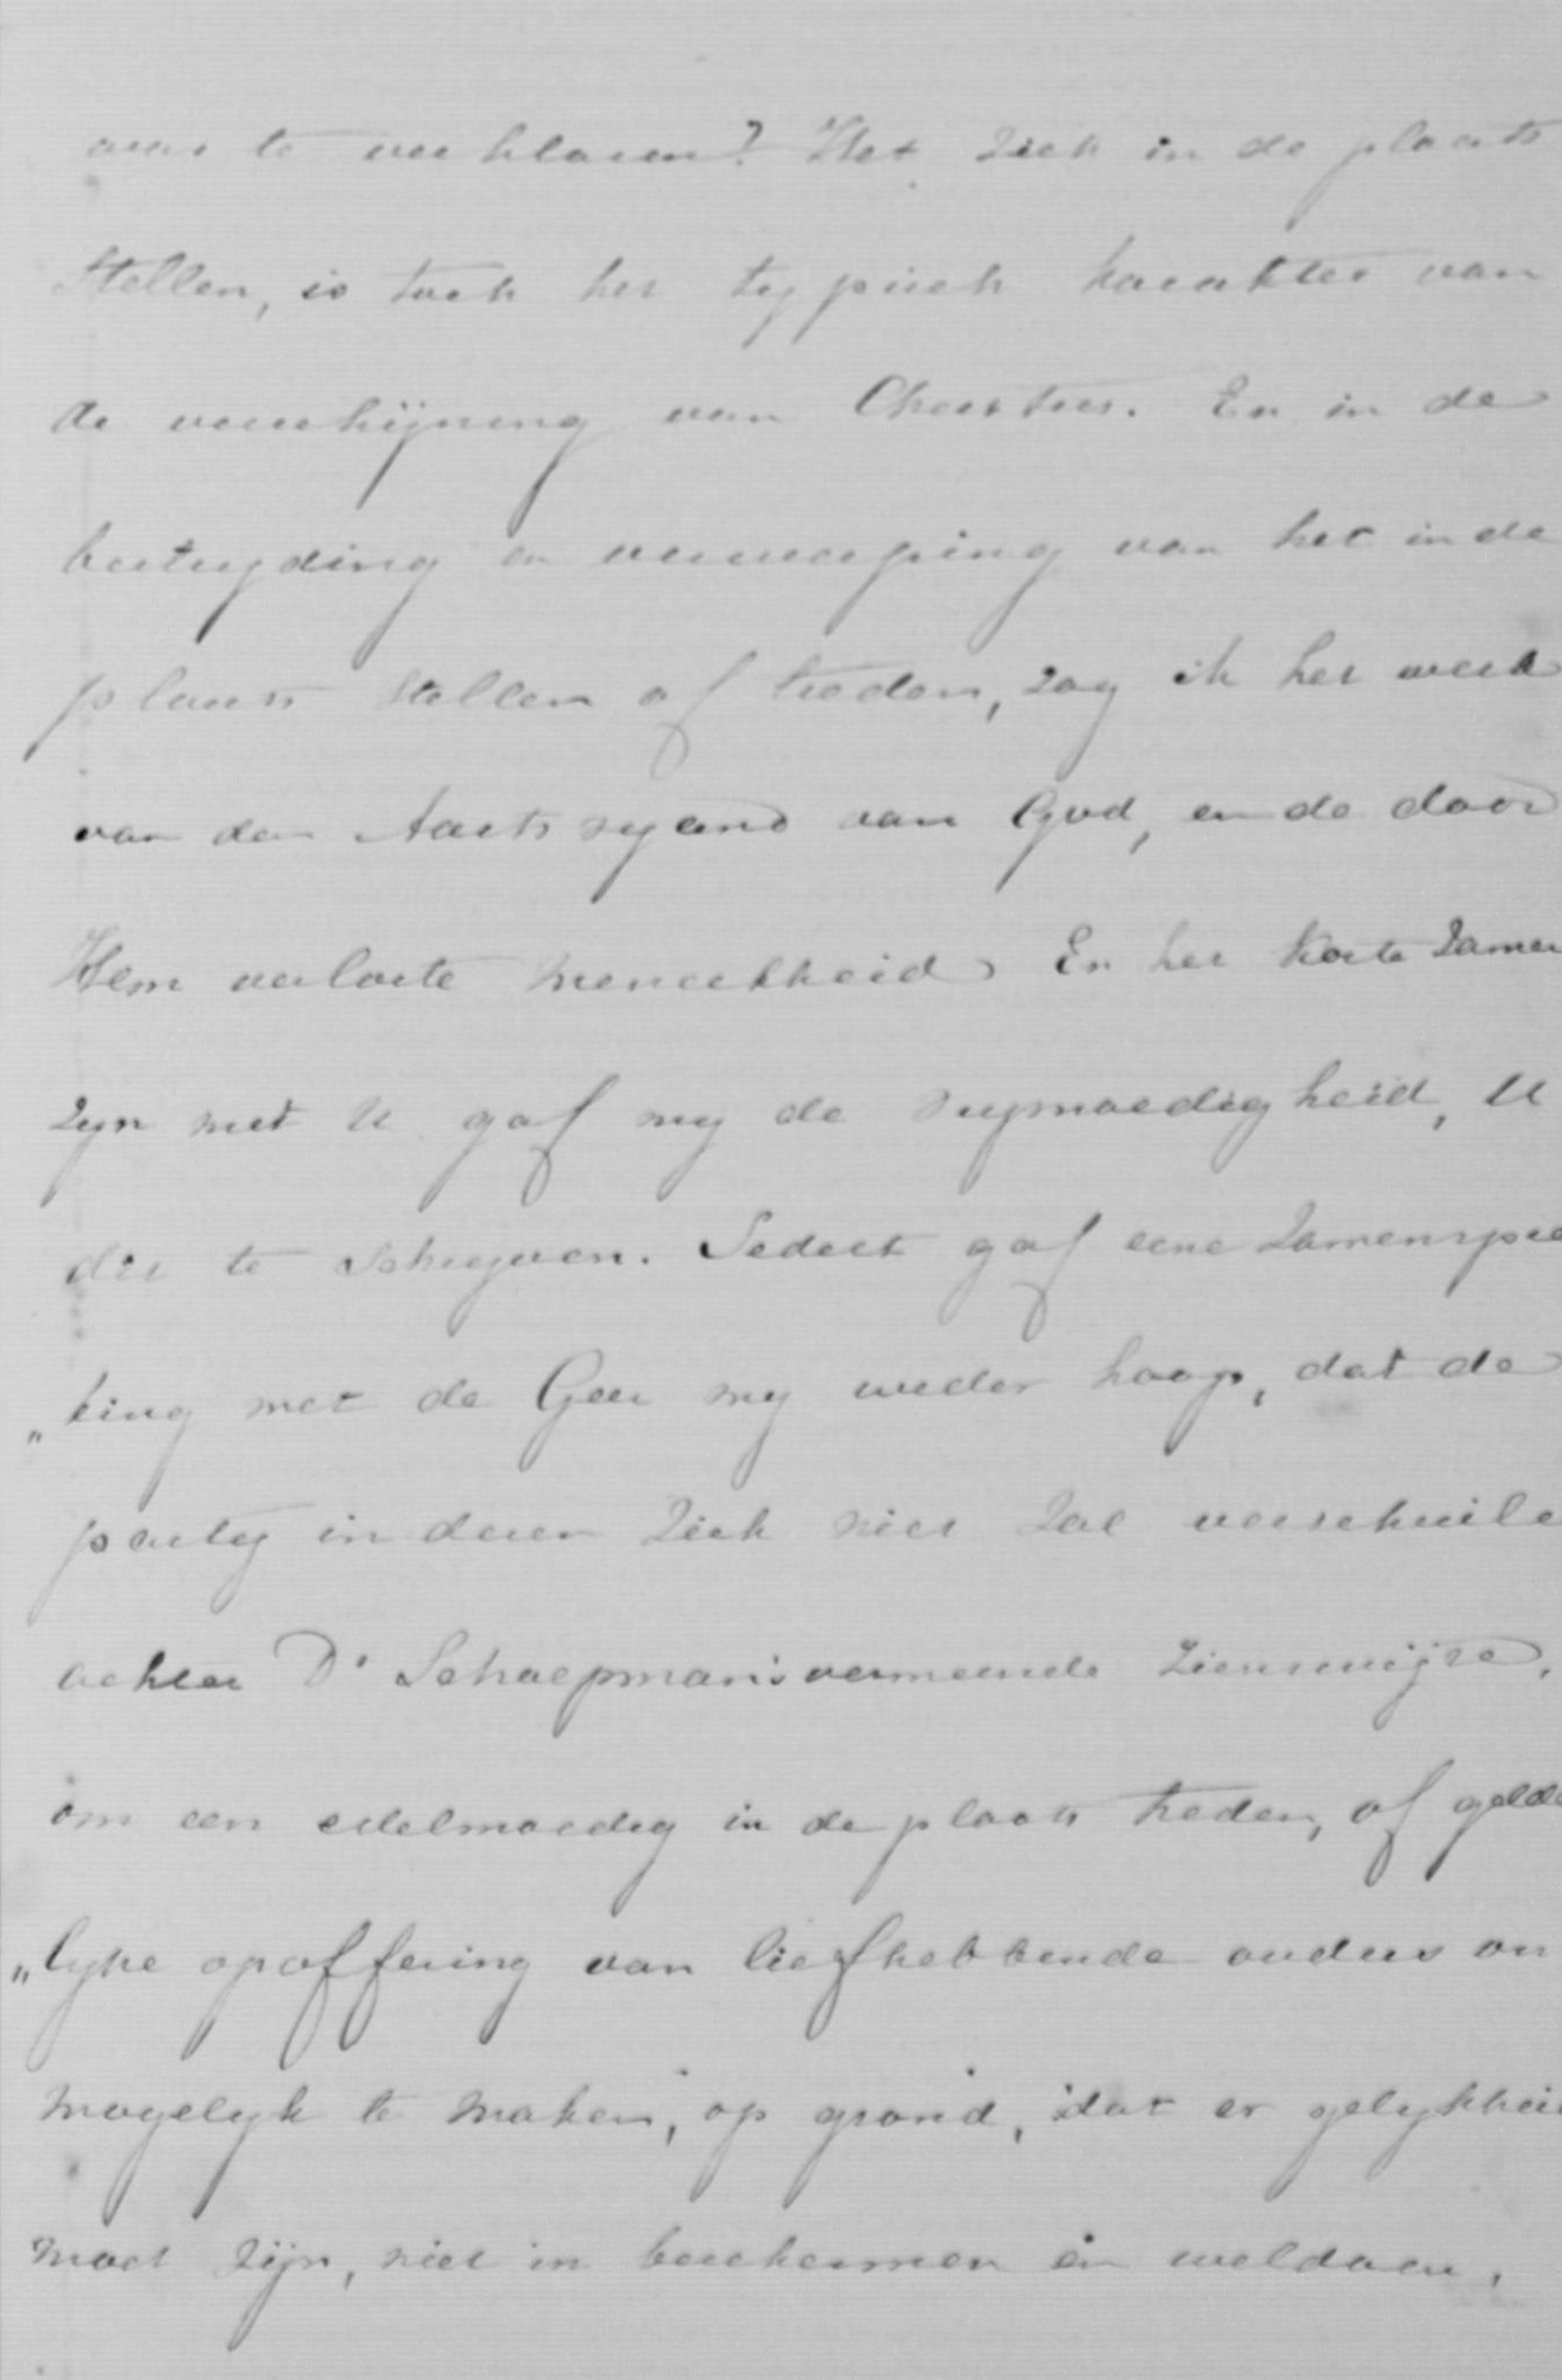 over te verklaren? Het zich in de plaats
stellen, is toch het typisch karakter van
de verschijning van Christus. En in de
bestryding en verwerping van het in de
plaats stellen of treden, zag ik het werk
van den Aartsvyand van God, en de door
Hem verloste menschheid En het korte zamen
zyn met U gaf my de vrymoedigheid, U
dit te schryven. Sedert gaf eene zamenspre
„king met de Geer my weder hoop, dat de
party in dezen zich niet zal verschuile
achter Dr Schaepman's vermeende zienswijze,
om een edelmoedig in de plaats treden, of gelde
„lyke opoffering van liefhebbende ouders on
mogelyk te maken, op grond, dat er gelykheid
moet zijn, niet in beschermen en weldoen,